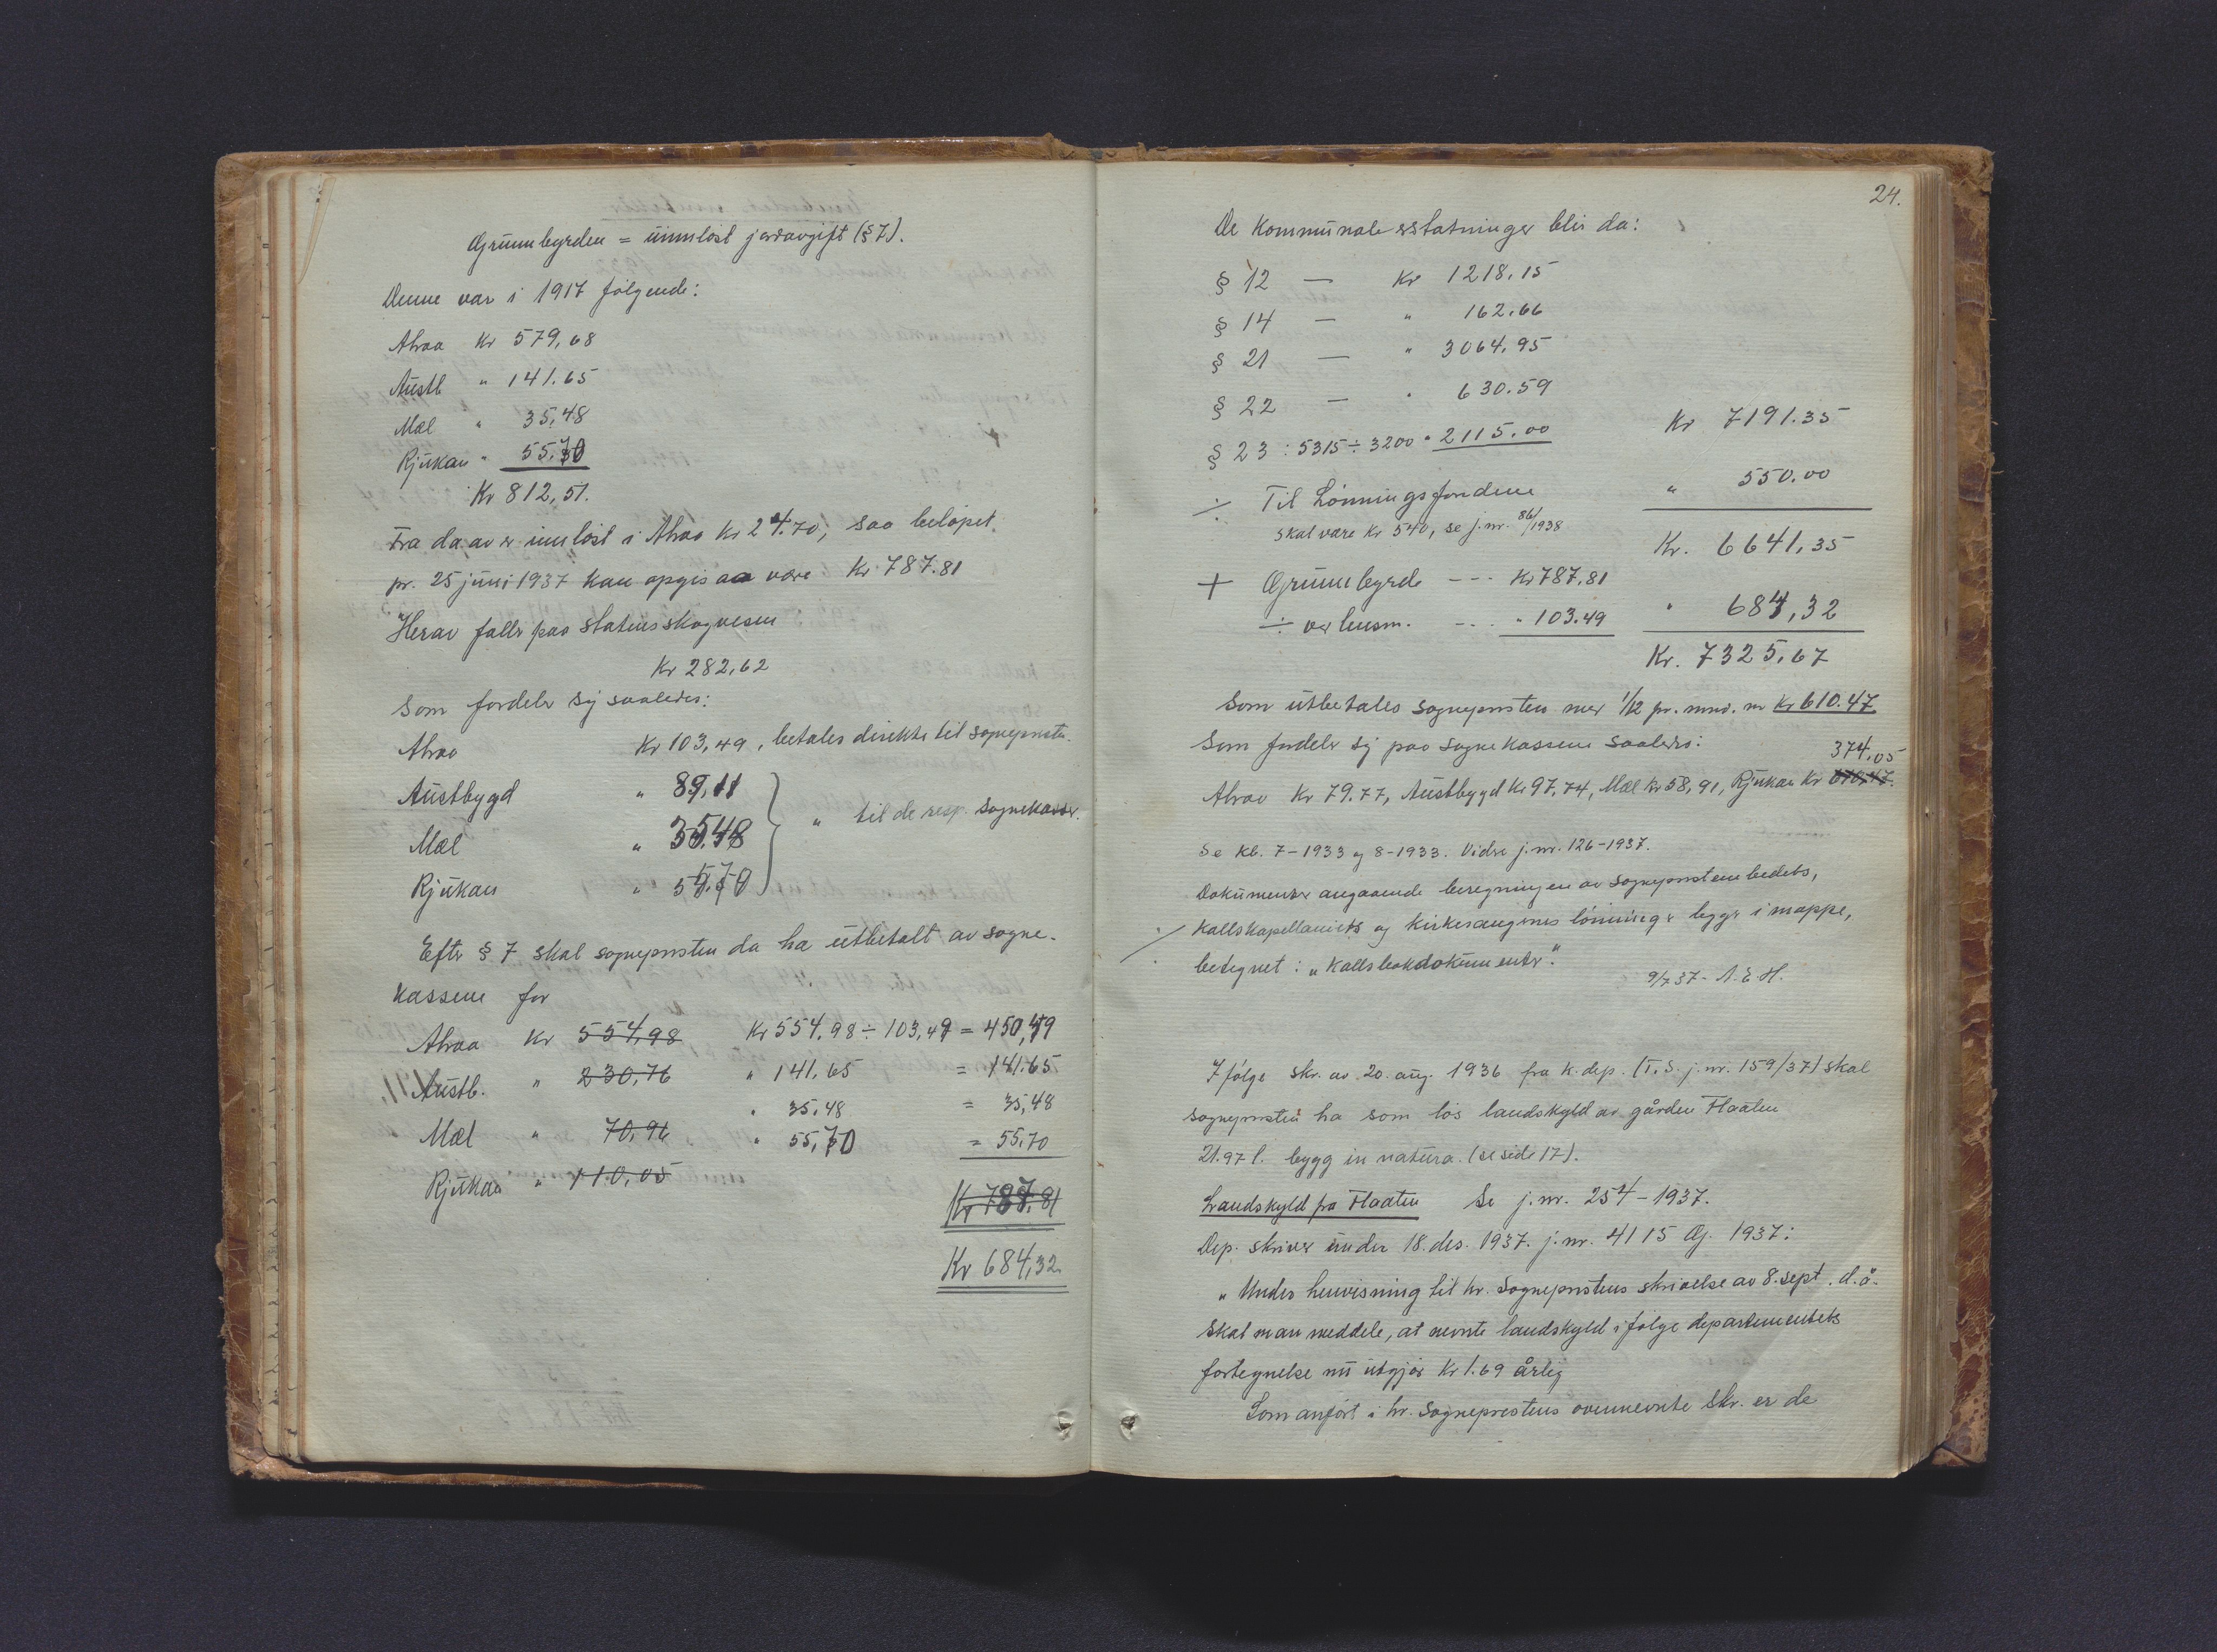 Grunnbyrden = uinnløst jordavgift (§ 7).
Denne var i 1917 følgende:
Atraa Kr 579,68
Austb " 141.65
Mæl " 35,48
Rjukan " 55.70
Kr 812,51.
Fra da av er innløst i Atraa Kr 24.70, saa beløpet
pr. 25 juni 1937 kan opgis aa være Kr 787.81
Herav faller paa Statens skogvesen
Kr 282,62
som fordeler sig saaledes:
Atraa Kr 103,49, betales direkte til sogneprsten.
Austbygd " 89,11
Mæl " 35.48 " til de resp. sognekasser.
Rjukan "
Efter § 7 skal sogneprsten da ha utbetalt av sogne-
kassene for
Atraa Kr 554,98 Kr 554,98 ÷ 103,49 = 450,49
Austb. " 230,76 " 141,65 = 141.65
Mæl " 70,96 " 35,48 = 35,48
Rjukan " 110,05 " 55,70 = 55,70
Kr 787,81
Kr 684,32
24.
De kommunale erstatninger blir da:
§ 12 — Kr 1218.15
§ 14 — " 162.66
§ 21 — " 3064.95
§ 22 — " 630.59
§ 23 : 5315 ÷ 3200 " 2115.00 Kr 7191.35
÷ Til Lønningsfondene " 550.00
skal være Kr 540, se j.nr. 86/1938
Kr. 6641,35
+ Grunnbyrde --- Kr 787,81
÷ --- " 103.49 " 684,32
Kr. 7325,67
Som utbetales sogneprsten med 1/12 pr. mnd. m Kr 610.47
Som fordeler sig paa sognekassene saaledes:
374,05
Atraa Kr 79.77, Austbygd Kr 97,74, Mæl Kr 58,91, Rjukan Kr 610,47.
Se kb. 7-1933 og 8-1933. Videre j.nr. 126-1937.
Dokumenter angaaende beregningen av sogneprstembedets,
kallskapellaniets og kirkesangernes lønninger ligger i mappe,
betegnet: "Kallsbokdokumenter".
9/7 37 - A. E. H.
Ifølge skr. av 20. aug. 1936 fra K. dep. (T. S. j.nr. 159/37) skal
sogneprsten ha som løs landskyld av gården Flaaten
21.97 l. bygg in natura. (se side 17).
Landskyld fra Flaaten Se j. nr. 254-1937.
Dep. skriver under 18. des. 1937. j. nr. 4115 Gj. 1937:
"Under henvisning til hr. Sogneprstens skrivelse av 8. sept. d.å.
skal man meddele, at nevnte landskyld ifølge departementets
fortegnelse nu utgjør Kr 1.69 årlig
Som anført i hr. Sogneprestens ovennevnte skr. er de